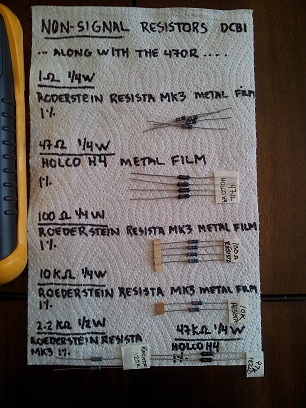 NON-SIGNAL RESISTORS DCB1
... ALONG WITH THE 470R ....
1Ω 1/4W
RODERSTEIN RESISTA MK3 METAL FILM
1%
47Ω 1/4W
HOLCO H4 METAL FILM
1%
47Ω
HOLCO H4
100Ω 1/4W
ROEDERSTEIN RESISTA MK3 METAL FILM
1%
100Ω
10KΩ 1/4W
ROEDERSTEIN RESISTA MK3 METAL FILM
1%
10K
2.2KΩ 1/2W
ROEDERSTEIN RESISTA
MK3 1%
47KΩ 1/4W
HOLCO H4
47K